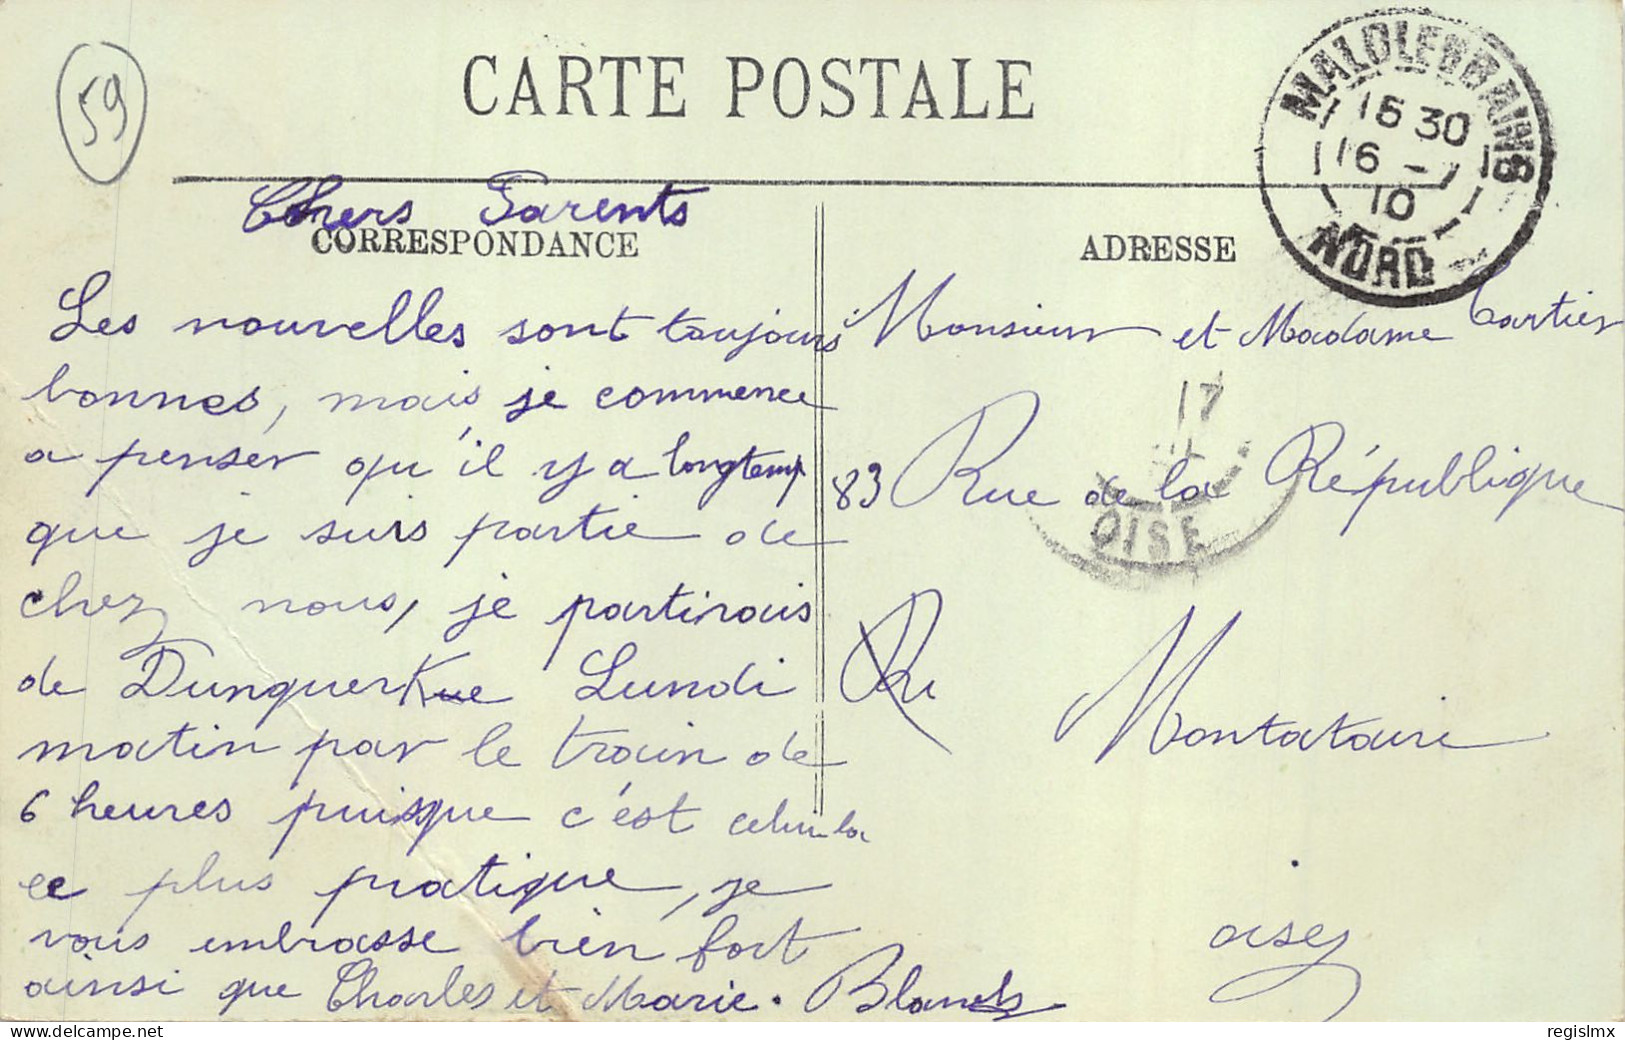 59
CARTE POSTALE
MALO LES BAINS
16 30
16 - 7
10
NORD
Chers Parents
CORRESPONDANCE
Les nouvelles sont toujours
bonnes, mais je commence
a penser qu'il y a longtemp
que je suis partie de
chez nous, je partirais
de Dunquerkue Lundi
matin par le train de
6 heures puisque c'est celui la
le plus pratique, je
vous embrasse bien fort
ainsi que Charles et Marie. Blanch
ADRESSE
Monsieur et Madame Cartier
17
OISE
83 Rue de la République
Ru
Montataire
oise
www.delcampe.net
regislmx